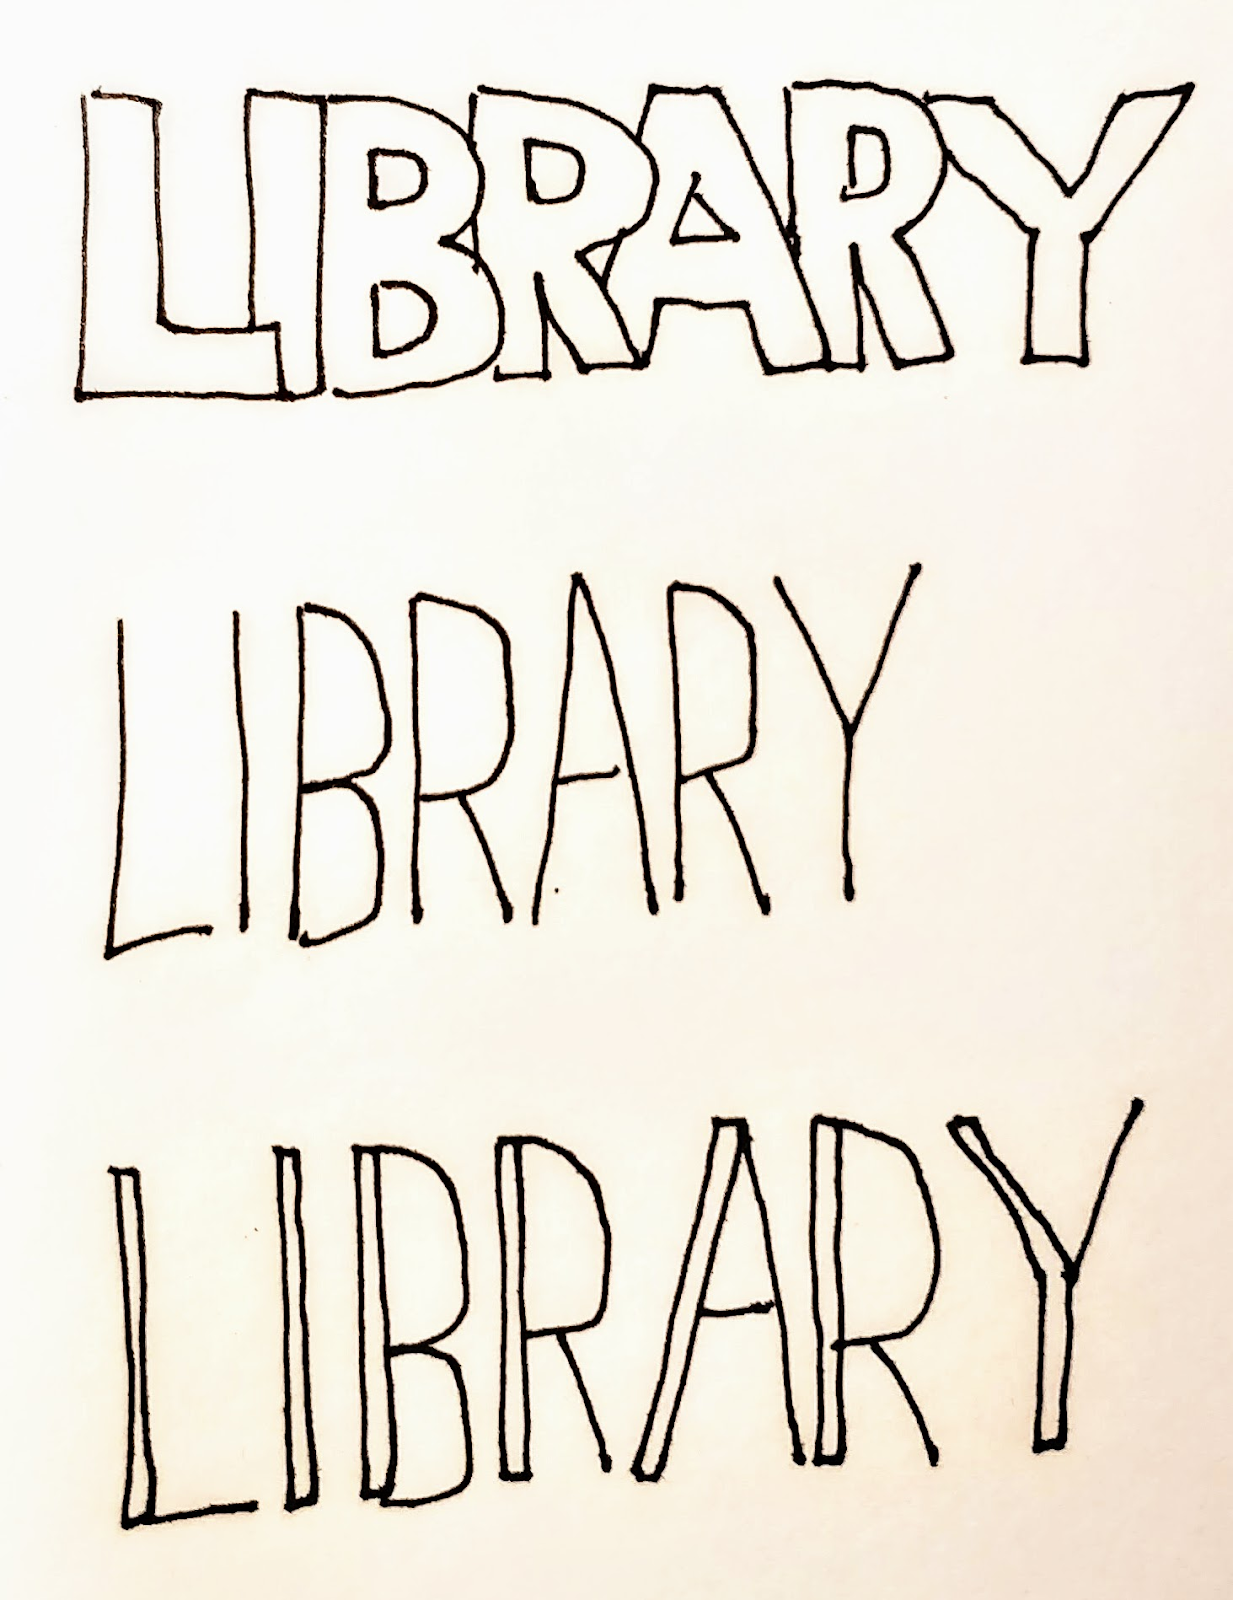 LIBRARY
LIBRARY
LIBRARY